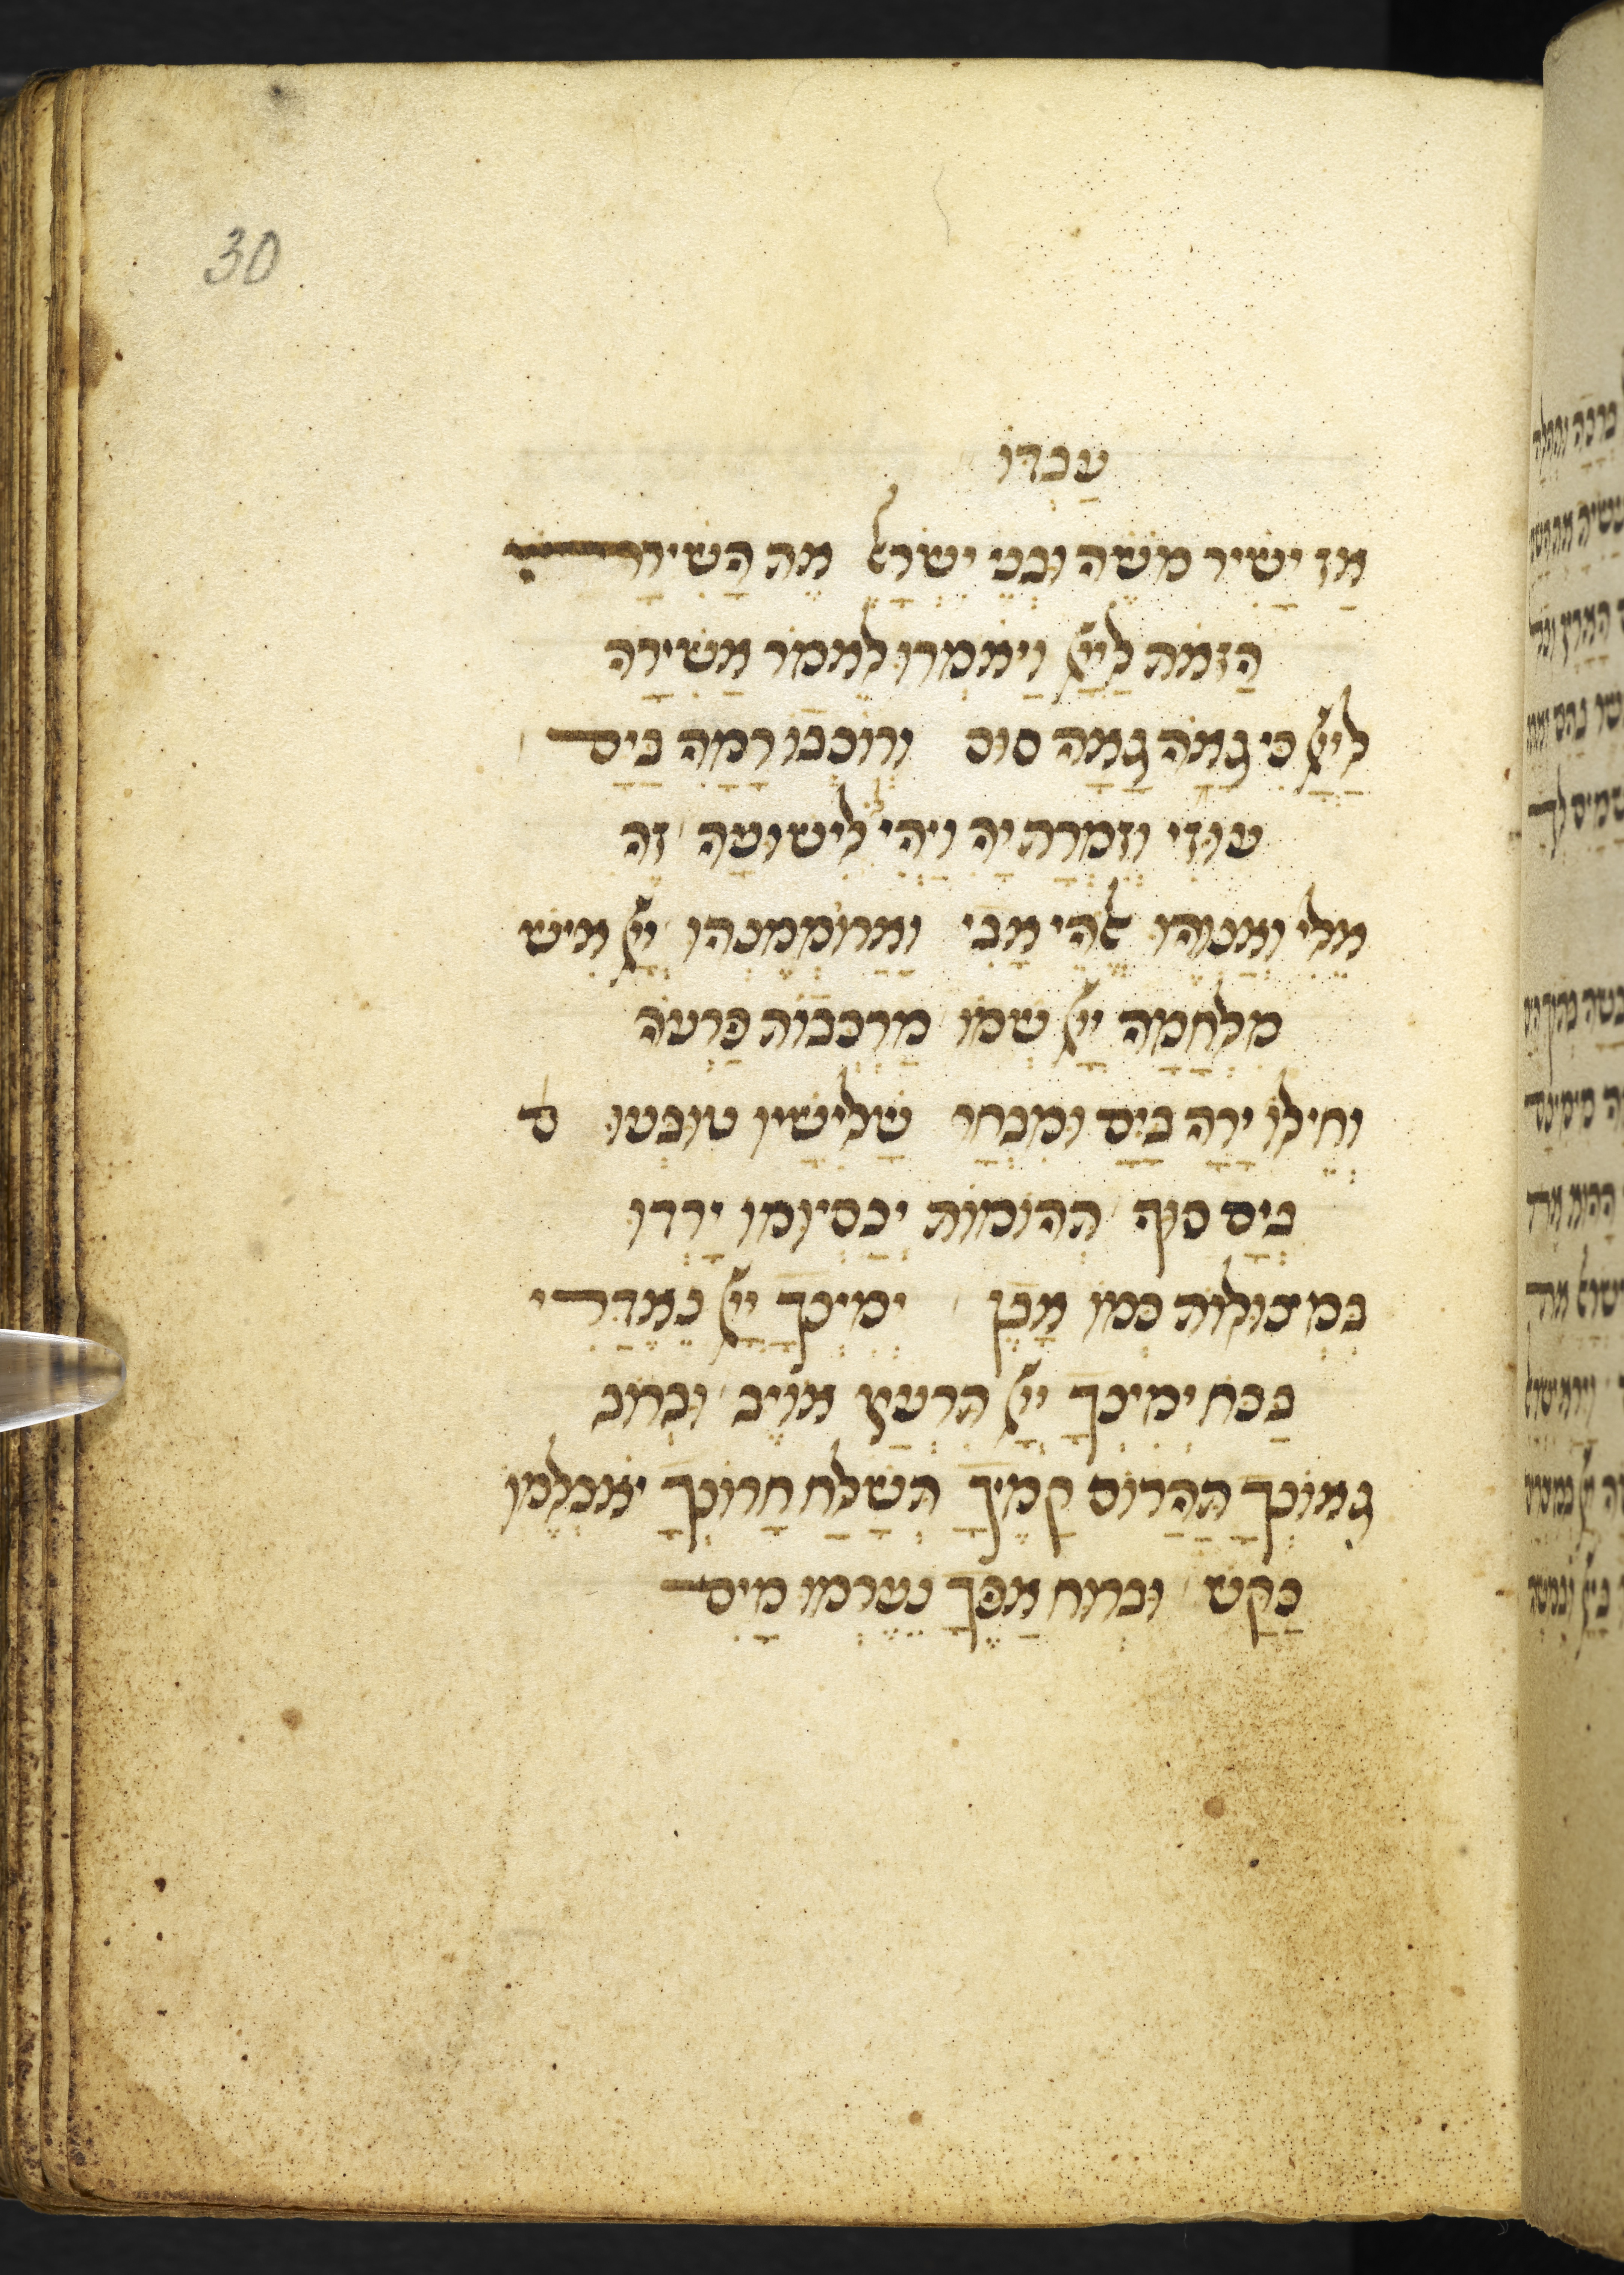 30
עַבְדּוֹ
אָז יָשִׁיר מֹשֶׁה וּבְנֵי יִשְׂרָאֵל אֶת הַשִּׁירָה
הַזֹּאת לַייָ וַיֹּאמְרוּ לֵאמֹר אָשִׁירָה
לַייָ כִּי גָאֹה גָּאָה סוּס וְרוֹכְבוֹ רָמָה בַיָּם
עָזִּי וְזִמְרָת יָהּ וַיְהִי לִי לִישׁוּעָה זֶה
אֵלִי וְאַנְוֵהוּ אֱלֹהֵי אָבִי וַאֲרוֹמְמֶנְהוּ יְיָ אִישׁ
מִלְחָמָה יְיָ שְׁמוֹ מַרְכְּבוֹת פַּרְעֹה
וְחֵילוֹ יָרָה בַיָּם וּמִבְחַר שָׁלִישָׁיו טוּבְּעוּ
בְיָם סוּף תְּהוֹמוֹת יְכַסְיוּמוּ יָרְדוּ
בִּמְצוּלוֹת כְּמוֹ אָבֶן יְמִינְךָ יְיָ נֶאְדָּרִי
בַּכֹּחַ יְמִינְךָ יְיָ תִּרְעַץ אוֹיֵב וּבְרוֹב
גְּאוֹנְךָ תַּהֲרוֹס קָמֶיךָ תְּשַׁלַּח חֲרוֹנְךָ יֹאכְלֵמוֹ
כַּקַּשׁ וּבְרוּחַ אַפֶּךָ נֶעֶרְמוּ מַיִם